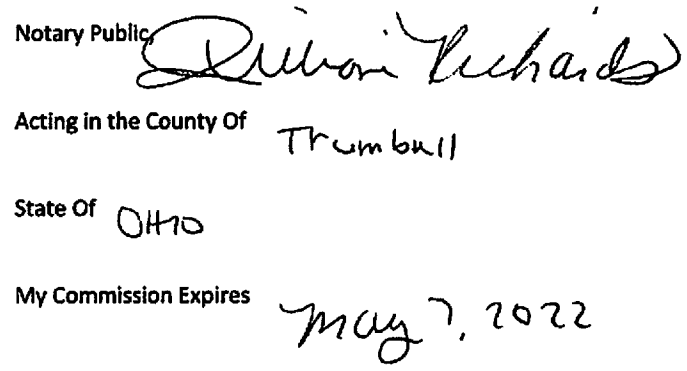 Notary Public, Richards
Acting in the County Of Trumbull
State Of OHIO
My Commission Expires May 7, 2022